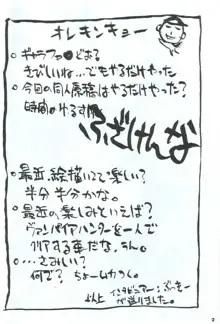 オレキンキョー
○ギャラファ●どある
きびしいね…でもやるだけやった
○今回の同人原稿はやるだけやった?
時間。ゆるす限
ふざけんな
○最近、絵描いてて楽しい?
半分半分かな。
○最近の楽しみといえば?
ヴァンパイアハンターを一人で
クリアする事だな、うん。
○…さみしい?
何で?ちょームカつく。
以上 インタビュアー:ぶーキー
が送りました。